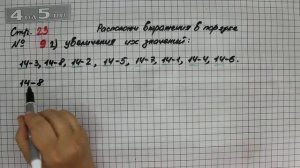 4 5
Стр. 23 Расположи выражения в порядке
№ 9 2) увеличения их значений:
14-3, 14-8, 14-2, 14-5, 14-7, 14-1, 14-4, 14-6.
14-8